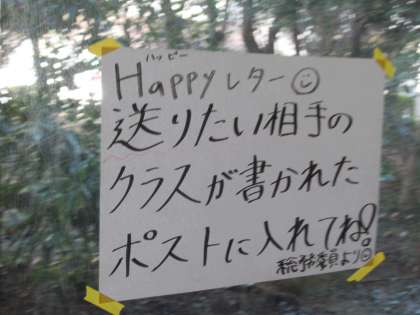 ハッピー
Happyレター☺
送りたい相手の
クラスが書かれた
ポストに入れてね!
総務委員より☺